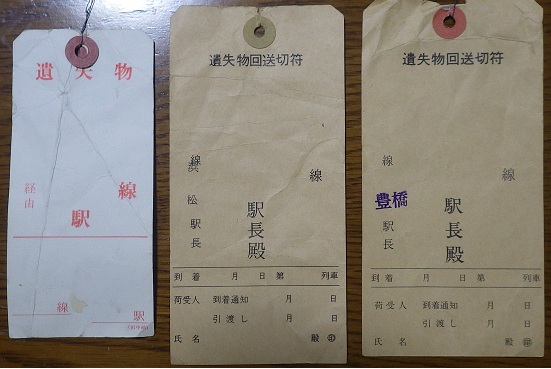 遺失物
線
経由
駅
線
駅
遺失物回送切符
線
駅長殿
線
浜松駅長
到着 月 日 第 列車
荷受人 到着通知 月 日
引渡し 月 日
氏名 殿 ㊞
遺失物回送切符
線
駅長殿
線
豊橋
駅長
到着 月 日 第 列車
荷受人 到着通知 月 日
引渡し 月 日
氏名 殿 ㊞